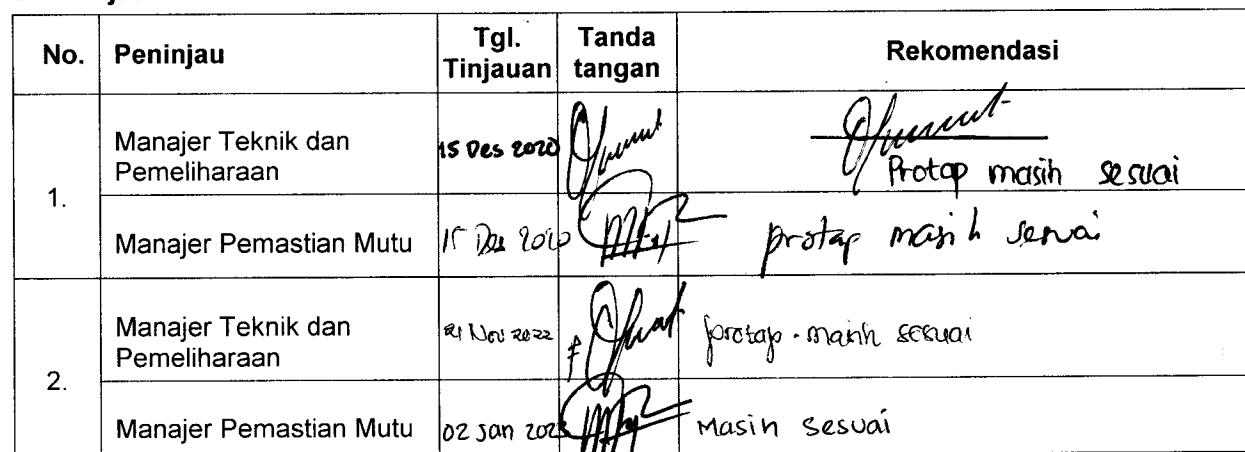 No. Peninjau Tgl. Tinjauan Tanda tangan Rekomendasi
1. Manajer Teknik dan Pemeliharaan 15 Des 2020 Protap masih sesuai
Manajer Pemastian Mutu 15 Des 2020 protap masih sesuai
2. Manajer Teknik dan Pemeliharaan 21 Nov 2022 protap masih sesuai
Manajer Pemastian Mutu 02 Jan Masih sesuai